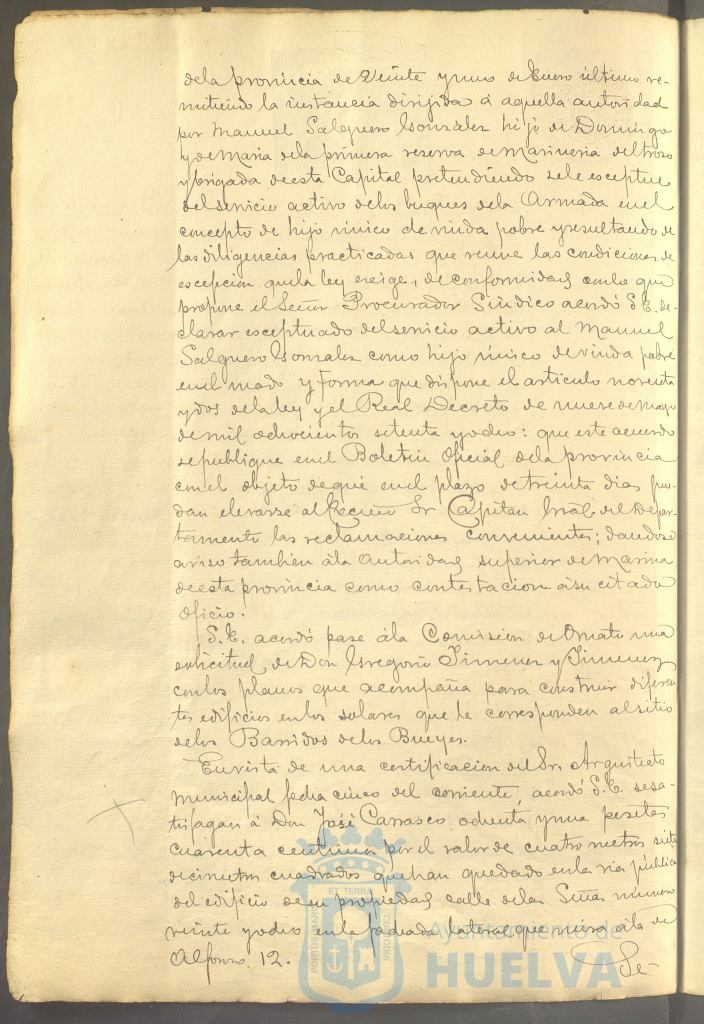 de la provincia de Veinte y uno de Enero último re-
mitiendo la instancia dirijida á aquella autoridad
por Manuel Salguero Gonzalez hijo de Domingo
y de Maria de la primera reserva de Marineria del trozo
y brigada de esta Capital pretendiendo se le esceptue
del servicio activo de los buques de la Armada en el
concepto de hijo único de viuda pobre y resultando de
las diligencias practicadas que reune las condiciones de
escepcion que la ley exige, de conformidad con lo que
propone el Señor Procurador Síndico acordó S.E. de-
clarar esceptuado del servicio activo al Manuel
Salguero Gonzalez como hijo único de viuda pobre
en el modo y forma que dispone el articulo noventa
y dos de la ley y el Real Decreto de nueve de Mayo
de mil ochocientos setenta y ocho: que este acuerdo
se publique en el Boletin Oficial de la provincia
con el objeto de que en el plazo de treinta dias pue-
dan elevarse al Excmo Sr Capitan Gral del Depar-
tamento las reclamaciones convenientes; dandose
aviso tambien á la Autoridad superior de Marina
de esta provincia como contestacion á su citado
oficio.
S.E. acordó pase á la Comision de Ornato una
solicitud de Don Gregorio Jimenez y Jimenez
con los planos que acompaña para construir diferen
tes edificios en los solares que le corresponden al sitio
de los Barridos de los Bueyes.
En vista de una certificacion del Sr. Arquitecto
Municipal fecha cinco del corriente, acordó S.E. se sa-
tisfagan á Don José Carrasco ochenta y una pesetas
cuarenta centimos por el valor de cuatro metros siete
decimetros cuadrados que han quedado en la via pública
del edificio de su propiedad calle de las Señas número
veinte y ocho en la fachada lateral que mira á la de
Alfonso 12.
Se-
PORTUS MARIS
ET TERRÆ
CUSTODIA
Ayuntamiento de
HUELVA